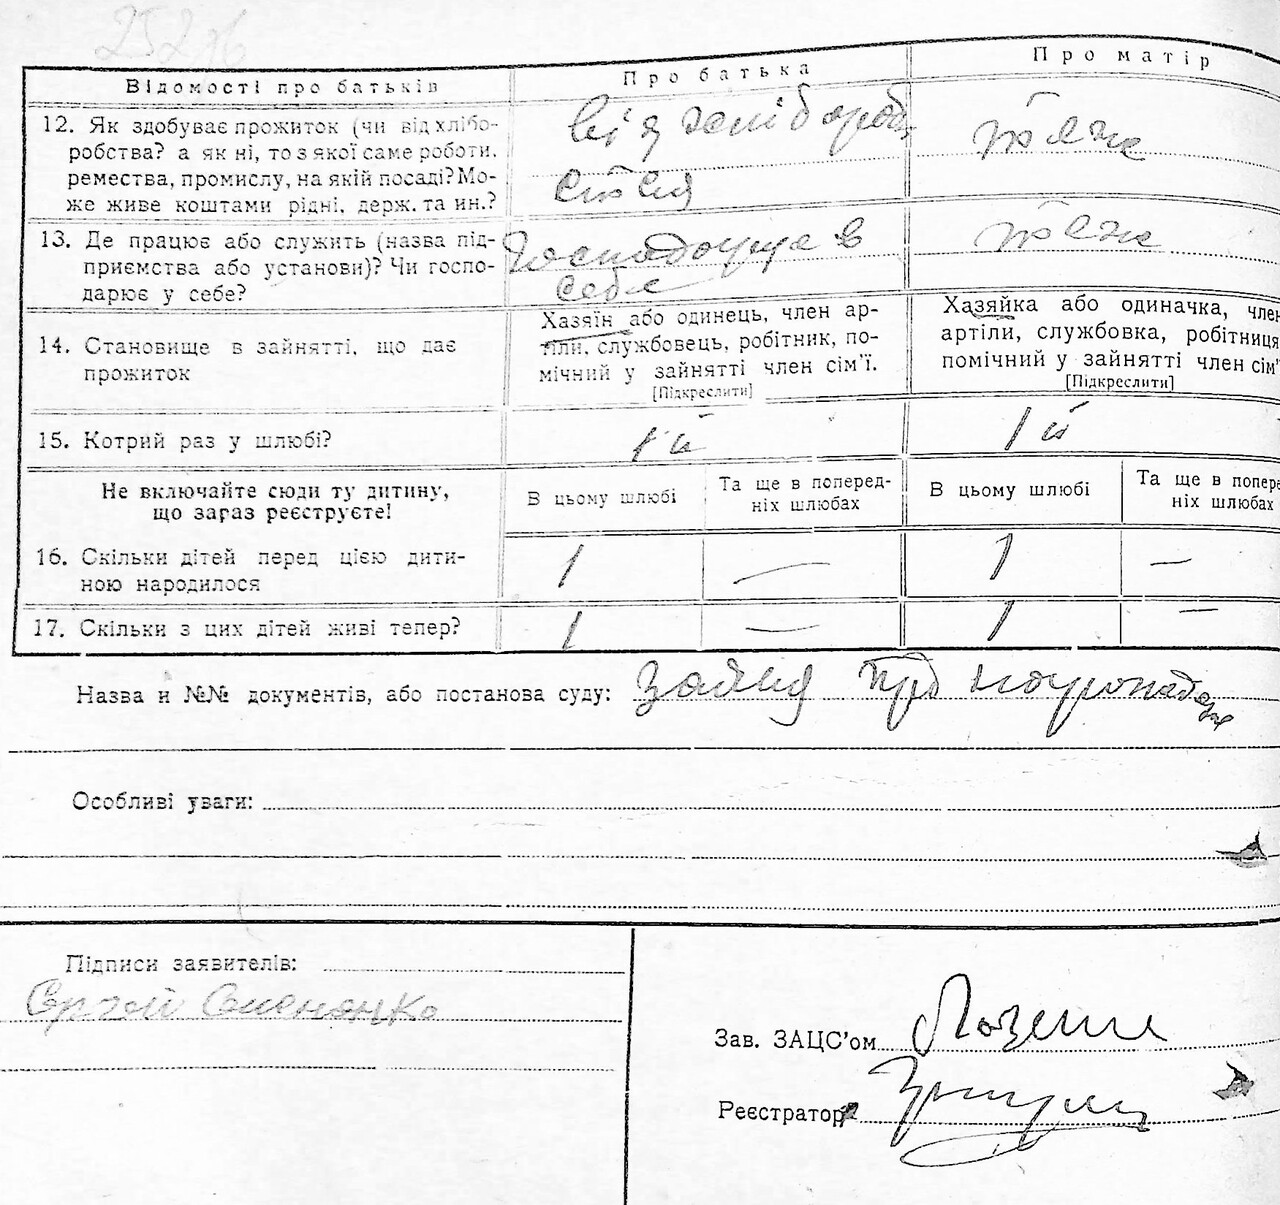 252зв
Відомості про батьків
Про батька
Про матір
12. Як здобуває прожиток (чи від хлібо-
робства? а як ні, то з якої саме роботи,
ремества, промислу, на якій посаді? Мо-
же живе коштами рідні, держ. та ин.?
Від хліборобс
ства
теж
13. Де працює або служить (назва під-
приємства або установи)? Чи госпо-
дарює у себе?
Господарює в
себе
теж
14. Становище в зайнятті, що дає
прожиток
Хазяїн або одинець, член ар-
тіли, службовець, робітник, по-
мічний у зайнятті член сім'ї.
[Підкреслити]
Хазяйка або одиначка, член
артіли, службовка, робітниця
помічний у зайнятті член сім'
[Підкреслити]
15. Котрий раз у шлюбі?
1й
1й
Не включайте сюди ту дитину,
що зараз реєструєте!
В цьому шлюбі
Та ще в поперед-
ніх шлюбах
В цьому шлюбі
Та ще в попере
ніх шлюбах
16. Скільки дітей перед цією дити-
ною народилося
1 — 1 —
17. Скільки з цих дітей живі тепер?
1 — 1 —
Назва и №№ документів, або постанова суду: заява про
Особливі уваги:
Підписи заявителів:
Сергій
Зав. ЗАЦС'ом
Реєстратор